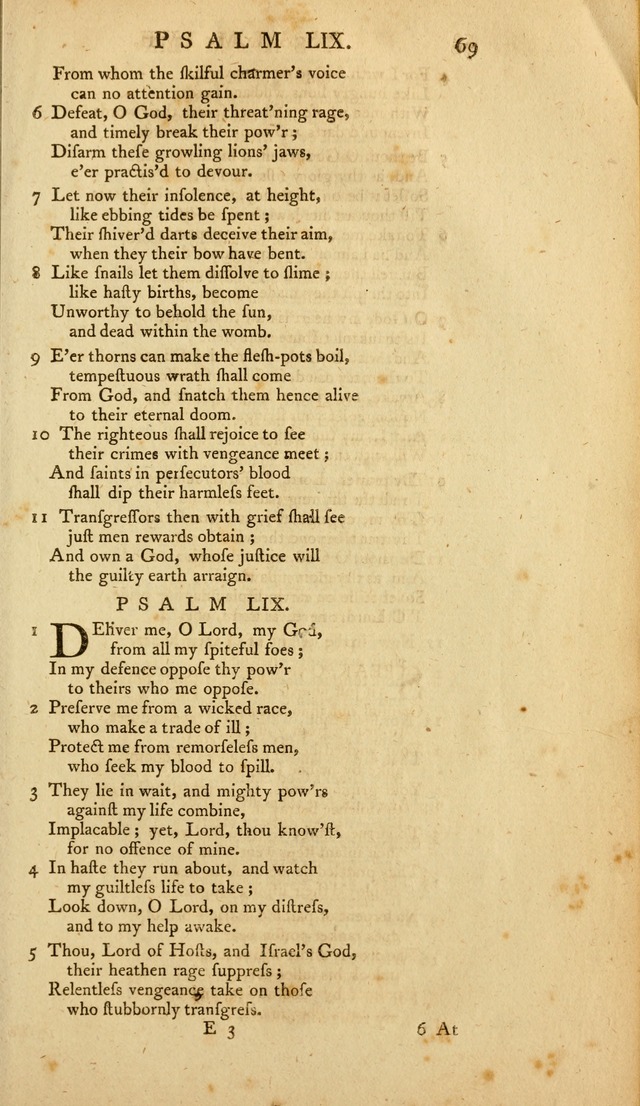 PSALM LIX. 69
From whom the ſkilful charmer's voice
can no attention gain.
6 Defeat, O God, their threat'ning rage,
and timely break their pow'r;
Diſarm theſe growling lions' jaws,
e'er practis'd to devour.
7 Let now their inſolence, at height,
like ebbing tides be ſpent;
Their ſhiver'd darts deceive their aim,
when they their bow have bent.
8 Like ſnails let them diſſolve to ſlime;
like haſty births, become
Unworthy to behold the ſun,
and dead within the womb.
9 E'er thorns can make the fleſh-pots boil,
tempeſtuous wrath ſhall come
From God, and ſnatch them hence alive
to their eternal doom.
10 The righteous ſhall rejoice to ſee
their crimes with vengeance meet;
And ſaints in perſecutors' blood
ſhall dip their harmleſs feet.
11 Tranſgreſſors then with grief ſhall ſee
juſt men rewards obtain;
And own a God, whoſe juſtice will
the guilty earth arraign.
PSALM LIX.
1 DEliver me, O Lord, my God,
from all my ſpiteful foes;
In my defence oppoſe thy pow'r
to theirs who me oppoſe.
2 Preſerve me from a wicked race,
who make a trade of ill;
Protect me from remorſeleſs men,
who ſeek my blood to ſpill.
3 They lie in wait, and mighty pow'rs
againſt my life combine,
Implacable; yet, Lord, thou know'ſt,
for no offence of mine.
4 In haſte they run about, and watch
my guiltleſs life to take;
Look down, O Lord, on my diſtreſs,
and to my help awake.
5 Thou, Lord of Hoſts, and Iſrael's God,
their heathen rage ſuppreſs;
Relentleſs vengeance take on thoſe
who ſtubbornly tranſgreſs.
E 3 6 At